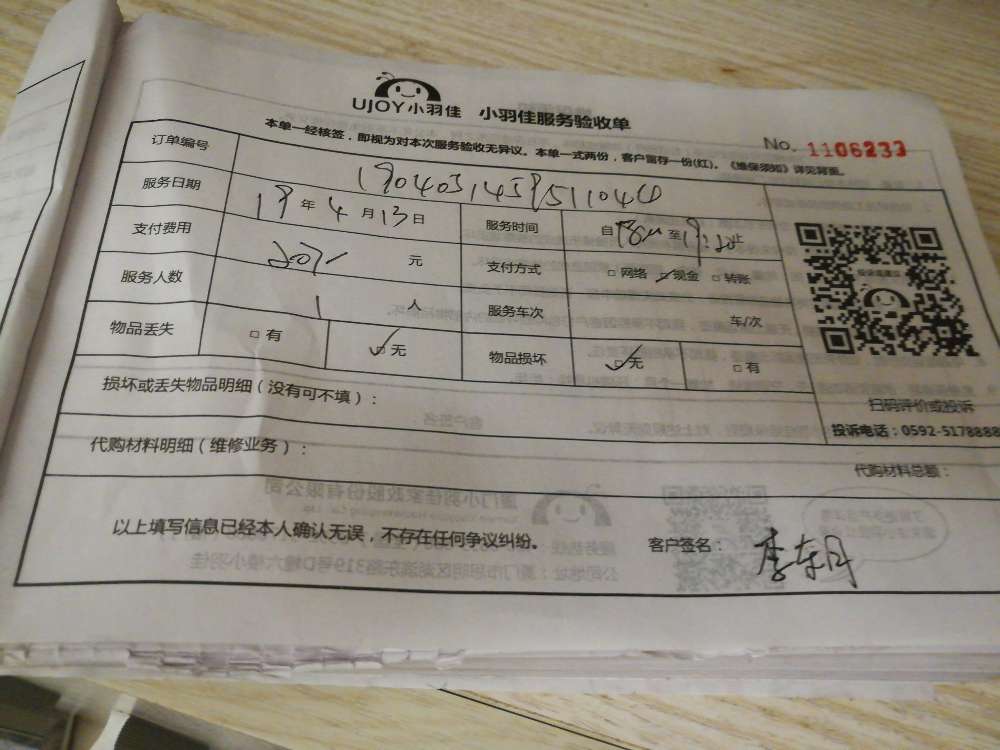 UJOY小羽佳 小羽佳服务验收单
No. 1106233
本单一经核签，即视为对本次服务验收无异议。本单一式两份，客户留存一份(红)。《维保须知》详见背面。
订单编号
服务日期 19 年 4 月 13 日 服务时间 自 至 止
支付费用 元 支付方式 □ 网络 □ 现金 □ 转账
服务人数 1 人 服务车次 车/次
物品丢失 □ 有 □ 无 物品损坏 □ 无 □ 有
损坏或丢失物品明细（没有可不填）：
扫码评价或投诉
投诉电话：0592-5178888
代购材料明细（维修业务）：
代购材料总额：
以上填写信息已经本人确认无误，不存在任何争议纠纷。 客户签名： 李东月